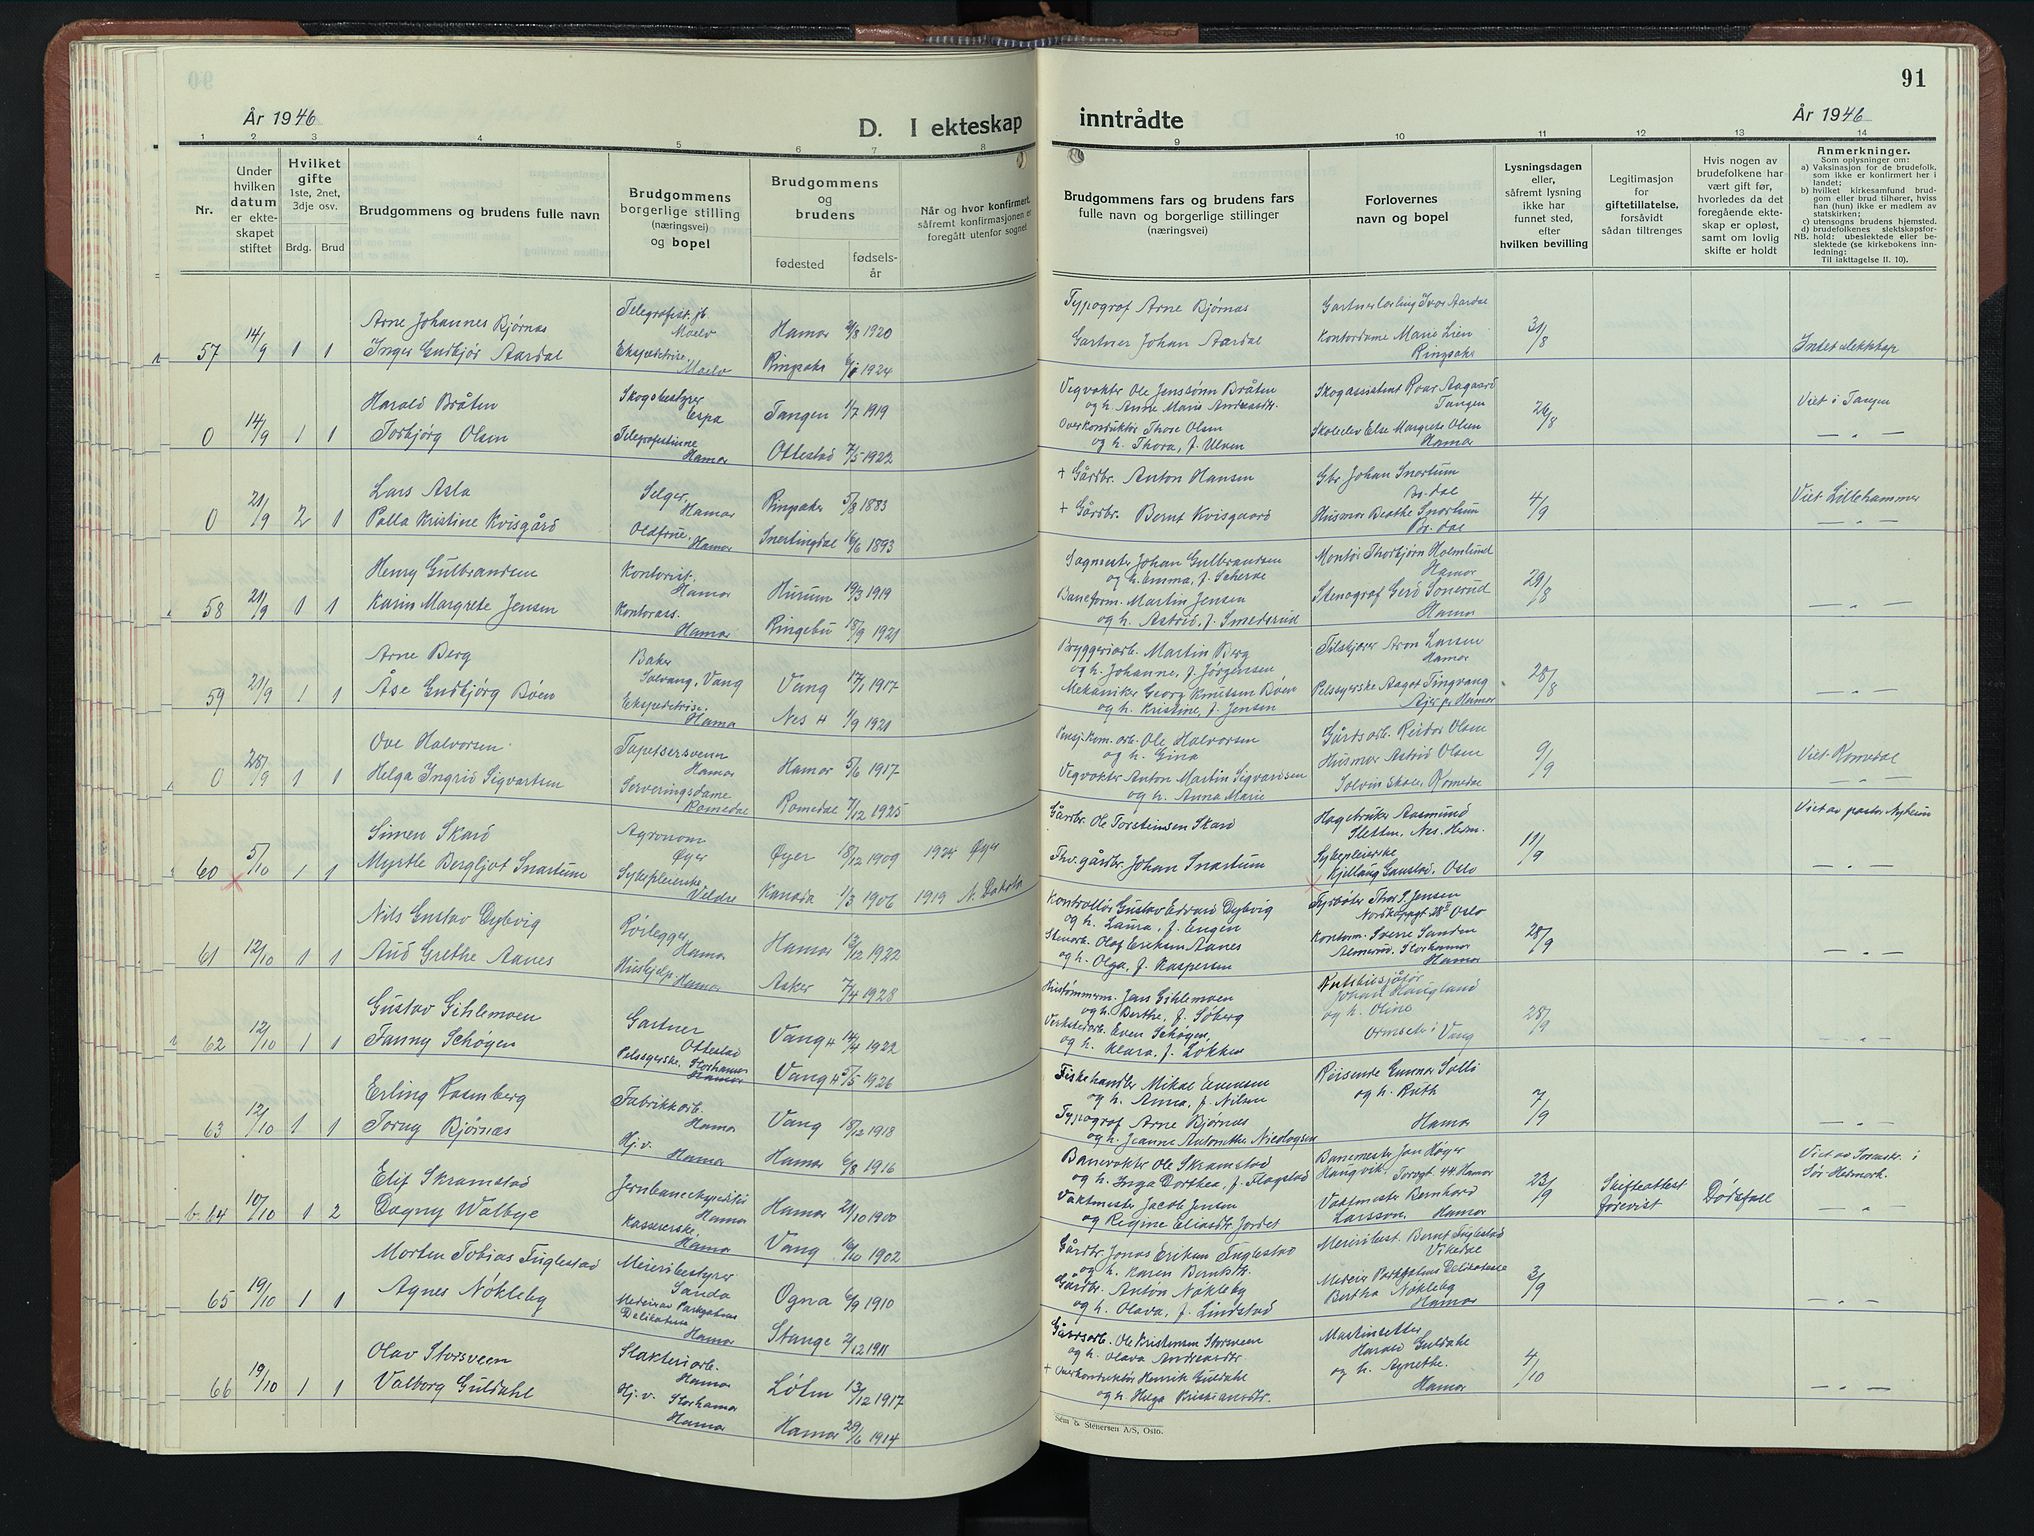 91
År 1946
D. I ekteskap
inntrådte
År 1946
1 2 3 4 5 6 7 8 9 10 11 12 13 14
Nr.
Under
hvilken
datum
er ekte-
skapet
stiftet
Hvilket
gifte
1ste, 2net,
3dje osv.
Brdg. Brud
Brudgommens og brudens fulle navn
Brudgommens
borgerlige stilling
(næringsvei)
og bopel
Brudgommens
og
brudens
fødested
fødsels-
år
Når og hvor konfirmert,
såfremt konfirmasjonen er
foregått utenfor sognet
Brudgommens fars og brudens fars
fulle navn og borgerlige stillinger
(næringsvei)
Forlovernes
navn og bopel
Lysningsdagen
eller,
såfremt lysning
ikke har
funnet sted,
efter
hvilken bevilling
Legitimasjon
for
giftetillatelse,
forsåvidt
sådan tiltrenges
Hvis nogen av
brudefolkene har
vært gift før,
hvorledes da det
foregående ekte-
skap er opløst,
samt om lovlig
skifte er holdt
Anmerkninger.
Som oplysninger om:
a) Vaksinasjon for de brudefolk,
som ikke er konfirmert her i
landet;
b) hvilket kirkesamfund brud-
gom eller brud tilhører, hviss
han (hun) ikke er medlem av
statskirken;
c) utensogns brudens hjemsted.
d) brudefolkenes slektskapsfor-
NB. hold: ubeslektede eller be-
slektede (se kirkebokens inn-
ledning:
Til iakttagelse II. 10).
57 14/9 1 1
Arne Johannes Bjørnås
Inger Gudbjør Aardal
Telegrafist
Moelv
Ekspeditrise,
Moelv
Hamar 2/8 1920
Ringsaker 1924
Typograf Arne Bjørnås
Gartner Johan Aardal
Gartnerlærling Ivar Aardal
Kontordame Marie Lien
Ringsaker
31/8
Intet slektskap
0 14/9 1 1
Harald Bråten
Torbjørg Olsen
Skogbestyrer
Espa
Telegrafistinne
Hamar
Tangen 1/7 1919
Ottestad 7/5 1922
Vegvokter Ole Jenssønn Bråten
og h. Anne Marie Andreasdtr.
Overkonduktør Thore Olsen
og h. Thora, f. Ulven
Skogassistent Roar Aagaard
Tangen
Skoleelev Else Margrete Olsen
Hamar
26/8
Viet i Tangen
— " —
0 21/9 2 1
Lars Asla
Palla Kristine Kvisgård
Selger,
Hamar
Oldfrue,
Hamar
Ringsaker 5/8 1883
Snertingdal 16/6 1893
+ Gårdbr. Anton Hansen
+ Gårdbr. Bernt Kvisgaard
Gbr Johan Snortum
Br. dal
Husmor Beathe Snortum
Br. dal
4/9
Viet Lillehammer
— " —
58 21/9 1 1
Henry Gulbrandsen
Karin Margrete Jensen
Kontorist,
Hamar
Kontorass.
Hamar
Hurum 19/3 1919
Ringebu 18/9 1921
Sagmester Johan Gulbrandsen
og h. Emma, f. Scherve
Baneform. Martin Jensen
og h. Astrid, f. Smedsrud
Montør Thorbjørn Holmlund
Hamar
Stenograf Gerd Sønerud
Hamar
29/8
— " —
59 21/9 1 1
Arne Berg
Åse Gudbjørg Bøen
Baker
Solvang, Vang
Ekspeditrise,
Hamar
Vang 17/1 1917
Nes H 1/9 1921
Bryggeriarb. Martin Berg
og h. Johanne, f. Jørgensen
Mekaniker Georg Knutsen Bøen
og h. Kristine, f. Jensen
Filskjærer Aron Larsen
Hamar
Pelssyerske Aagot Tingvang
Ajer pr. Hamar
28/8
— " —
0 28/9 1 1
Ove Halvorsen
Helga Ingrid Sigvartsen
Tapetsersvenn
Hamar
Serveringsdame
Romedal
Hamar 5/6 1917
Romedal 7/12 1925
Pensj. Kom. arb. Ole Halvorsen
og h. Gina
Vegvokter Anton Martin Sigvardsen
og h. Anna Marie
Gårdsarb. Reidar Olsen
Husmor Astrid Olsen
Solvin Skole, Romedal
9/9
Viet Romedal
— " —
60 5/10 1 1
Simen Skard
Myrtle Bergljot Snartum
Agronom
Øyer
Sykepleierske
Veldre
Øyer 18/12 1909
Kanada 1/3 1906
1924 Øyer
1919 N. Dakota
Gårdbr. Ole Torsteinsen Skard
Fhv. gårdbr. Johan Snartum
Hagebruker Aasmund
Sletten, Nes. Hedm.
Sykepleierske
Kjellaug Saustad, Oslo
11/9
Viet av pastor Nyheim
— " —
61 12/10 1 1
Nils Gustav Dybvig
Aud Grethe Aanes
Rørlegger
Hamar
Hushjelp, Hamar
Hamar 13/12 1922
Asker 7/4 1928
Kontrollør Gustav Edvard Dybvig
og h. Laura, f. Engen
Stenarb. Olaf Eriksen Aanes
og h. Olga, f. Kaspersen
Fyrbøter Thor J. Jensen
Norskappgt 28 II Oslo
Kontorm. Sverre Sanden
Almerud, Storhamar
Hamar
28/9
— " —
62 12/10 1 1
Gustav Gihlemoen
Fanny Schøgen
Gartner
Ottestad
Pelssyerske, Storhamar
Hamar
Vang H 14/4 1922
Vang H 5/5 1926
Hustømmerm. Jens Gihlemoen
og h. Berthe, f. Søberg
Verkstedarb. Even Schøgen,
og h. Klara, f. Løkken
Rutebilsjåfør
Johan Haugland
og h. Oline
Ormseter i Vang
28/9
— " —
63 12/10 1 1
Erling Rosenberg
Torny Bjørnås
Fabrikkarb.
Hamar
Hj. v.
Hamar
Vang 18/12 1918
Hamar 6/8 1916
Fiskehandler Mikal Evensen
og h. Anna, f. Nilsen
Typograf Arne Bjørnås
og h. Jeanne Antonette Nicolaysen
Reisende Gunnar Solli
og h. Ruth
Hamar
7/9
— " —
b. 64 10/10 1 2
Elif Skramstad
Dagny Walbye
Jernbaneekspeditør
Hamar
Kassererske,
Hamar
Hamar 21/10 1900
Vang 16/10 1902
Banevokter Ole Skramstad
og h. Inga Dorthea, f. Flagstad
Vaktmester Jacob Jensen
og Regine Eliasdtr Jordet
Banemester Jon Høyer
Haugvik, Torvgt 44. Hamar
Vaktmester Bernhard
Larsson, Hamar
23/9
Skifteattest
forevist
Dødsfall
Viet av Sorenskr. i
Sør-Hedmark.
— " —
65 19/10 1 1
Morten Tobias Fuglestad
Agnes Nøkleby
Meieribestyrer
Sanda
Medeier av Parkgatens
Delikatesse
Hamar
Ogna 6/9 1910
Stange 2/12 1911
Gårdbr. Jonas Eriksen Fuglestad
og h. Karen Berntsdtr.
Gårdbr. Anton Nøkleby
og h. Olava, f. Lindstad
Meieribest. Bernt Fuglestad
Vikedal
Medeier Parkgatens Delikatesse
Bertha Nøkleby
Hamar
3/9
— " —
66 19/10 1 1
Olav Storsveen
Valborg Guldahl
Slakteriarb.
Hamar
Hj. v. Storhamar
Hamar
Løten 13/12 1917
Hamar 29/6 1914
Gårdsarb. Ole Kristensen Storsveen
og h. Olava Andreasdtr
+ Overkonduktør Henrik Guldahl
og h. Helga Kristiansdtr.
Maskinsetter
Harald Guldahl
og h. Agnethe.
Hamar
4/10
— " —
Sem & Stenersen A/S, Oslo.